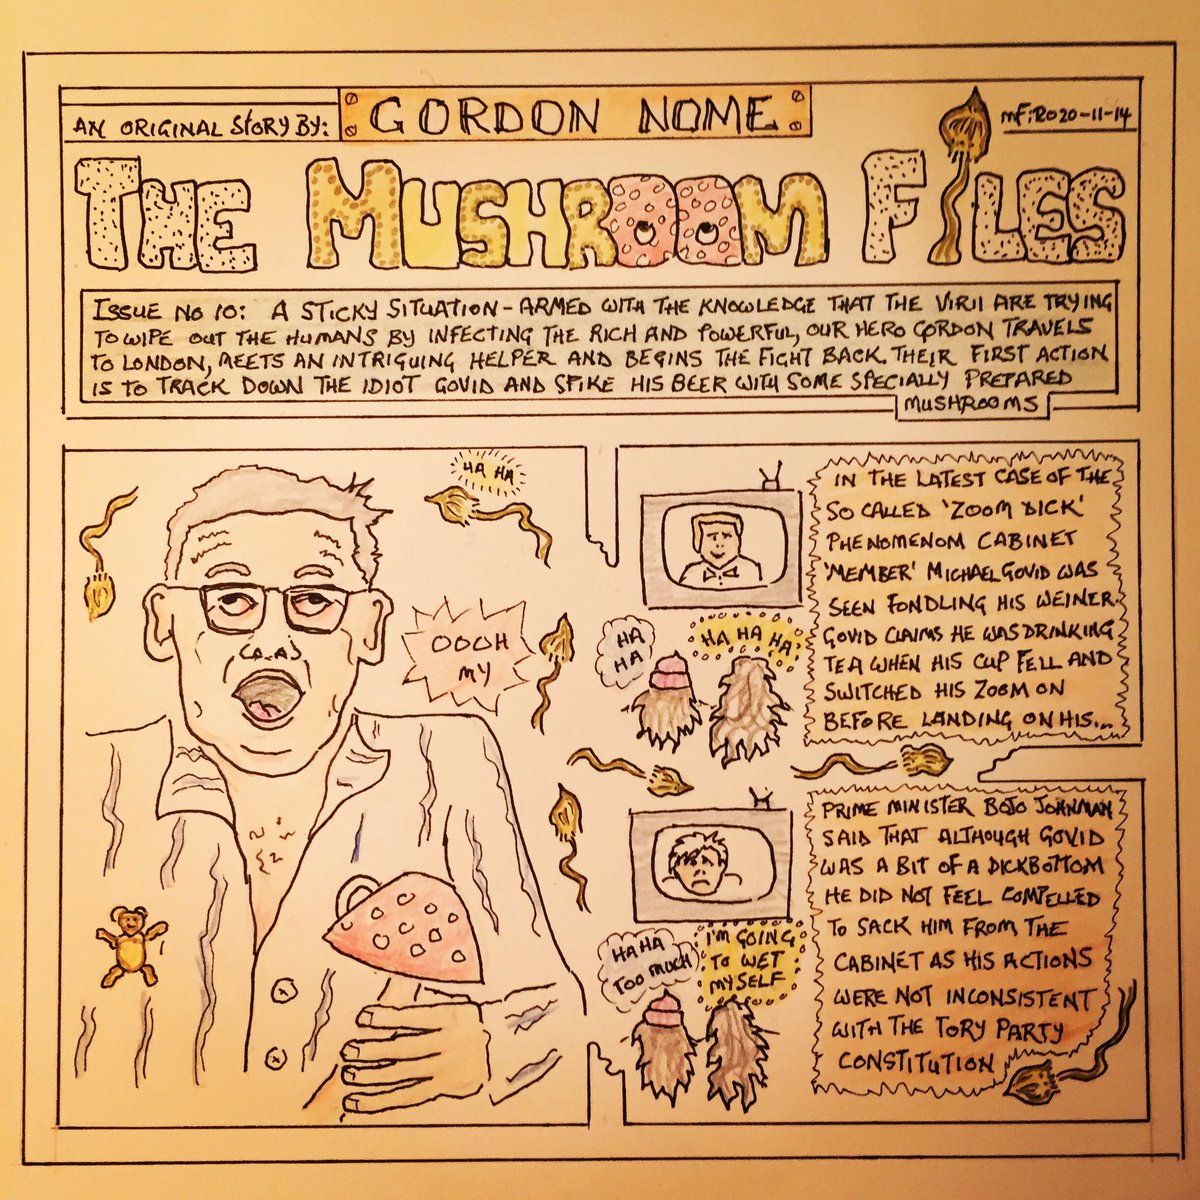 AN ORIGINAL STORY BY:
GORDON NOME
mF:R020-11-14
THE MUSHROOM FILES
ISSUE NO 10: A STICKY SITUATION - ARMED WITH THE KNOWLEDGE THAT THE VIRII ARE TRYING
TO WIPE OUT THE HUMANS BY INFECTING THE RICH AND POWERFUL, OUR HERO GORDON TRAVELS
TO LONDON, MEETS AN INTRIGUING HELPER AND BEGINS THE FIGHT BACK. THEIR FIRST ACTION
IS TO TRACK DOWN THE IDIOT GOVID AND SPIKE HIS BEER WITH SOME SPECIALLY PREPARED
MUSHROOMS
HA HA
OOOH
MY
HA
HA
HA HA HA
IN THE LATEST CASE OF THE
SO CALLED 'ZOOM DICK'
PHENOMENOM CABINET
'MEMBER' MICHAEL GOVID WAS
SEEN FONDLING HIS WEINER.
GOVID CLAIMS HE WAS DRINKING
TEA WHEN HIS CUP FELL AND
SWITCHED HIS ZOOM ON
BEFORE LANDING ON HIS...
HA HA
TOO MUCH
I'M GOING
TO WET
MYSELF
PRIME MINISTER BOJO JOHNMAN
SAID THAT ALTHOUGH GOVID
WAS A BIT OF A DICKBOTTOM
HE DID NOT FEEL COMPELLED
TO SACK HIM FROM THE
CABINET AS HIS ACTIONS
WERE NOT INCONSISTENT
WITH THE TORY PARTY
CONSTITUTION